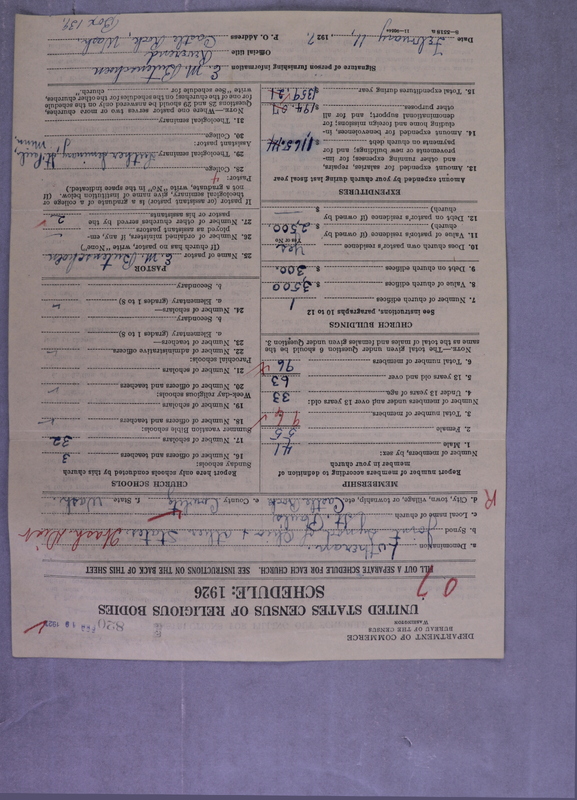 DEPARTMENT OF COMMERCE
BUREAU OF THE CENSUS
WASHINGTON
820
UNITED STATES CENSUS OF RELIGIOUS BODIES
SCHEDULE: 1926
FILL OUT A SEPARATE SCHEDULE FOR EACH CHURCH. SEE INSTRUCTIONS ON THE BACK OF THIS SHEET
a. Denomination Lutheran:
b. Synod Joint Synod of Ohio & other States: Wash. Dist
c. Local name of church St. Paul's
d. City, town, village, or township, etc. Castle Rock e. County Cowlitz f. State Wash.
MEMBERSHIP
Report number of members according to definition of member in your church
Number of members, by sex:
1. Male 41
2. Female 55
3. Total number of members 96
Number of members under and over 13 years old:
4. Under 13 years of age 33
5. 13 years old and over 63
6. Total number of members 96
NOTE.—The total given under Question 6 should be the same as the total of males and females given under Question 3.
CHURCH BUILDINGS
See instructions, paragraphs 10 to 12
7. Number of church edifices 1
8. Value of church edifices $ 3,500
9. Debt on church edifices $ 300.
10. Does church own pastor's residence Yes
Yes or No
11. Value of pastor's residence (if owned by church) $ 2,500.
12. Debt on pastor's residence (if owned by church) $
EXPENDITURES
Amount expended by your church during last fiscal year
13. Amount expended for salaries, repairs, and other running expenses; for improvements or new buildings; and for payments on church debt
14. Amount expended for benevolences, including home and foreign missions; for denominational support; and for all other purposes $ 194.27
15. Total expenditures during year 1359.21
CHURCH SCHOOLS
Report here only schools conducted by this church
Sunday schools:
16. Number of officers and teachers 3
17. Number of scholars 32
Summer vacation Bible schools:
18. Number of officers and teachers
19. Number of scholars
Week-day religious schools:
20. Number of officers and teachers
21. Number of scholars
Parochial schools:
22. Number of administrative officers
23. Number of teachers—
a. Elementary (grades 1 to 8)
b. Secondary
24. Number of scholars—
a. Elementary (grades 1 to 8)
b. Secondary
PASTOR
25. Name of pastor E. M. Butenschoen
(If church has no pastor, write "None")
26. Number of ordained ministers, if any, employed as assistant pastors
27. Number of other churches served by the pastor or his assistants 2
If pastor (or assistant pastor) is a graduate of a college or theological seminary, give name of institution below. (If not a graduate, write "No" in the space indicated.)
Pastor:
28. College
29. Theological seminary Luther Seminary, St. Paul, Minn.
Assistant pastor:
30. College
31. Theological seminary
NOTE.—Where one pastor serves two or more churches, Questions 25 and 29 should be answered only on the schedule for one of the churches; on the schedules for the other churches, write "See schedule for church."
Signature of person furnishing information E. M. Butenschoen
Official title Reverend
P. O. Address Castle Rock, Wash.
Box 134,
Date February 11, 1927.